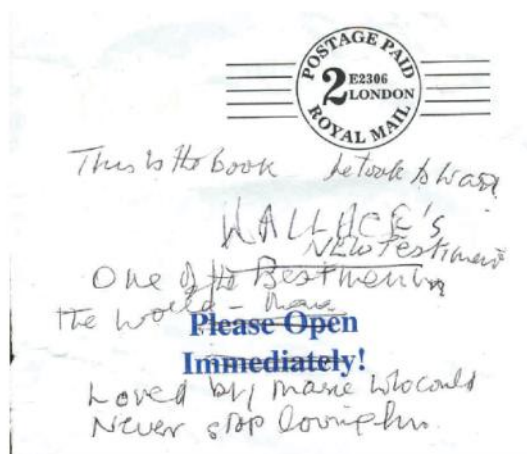 POSTAGE PAID
2 E2306
LONDON
ROYAL MAIL
This is the book he took to war
WALLACE's
NEW Testiment
One of the Best men in
the world -
Please Open
Immediately!
Loved by Marie who could
Never stop loving him.